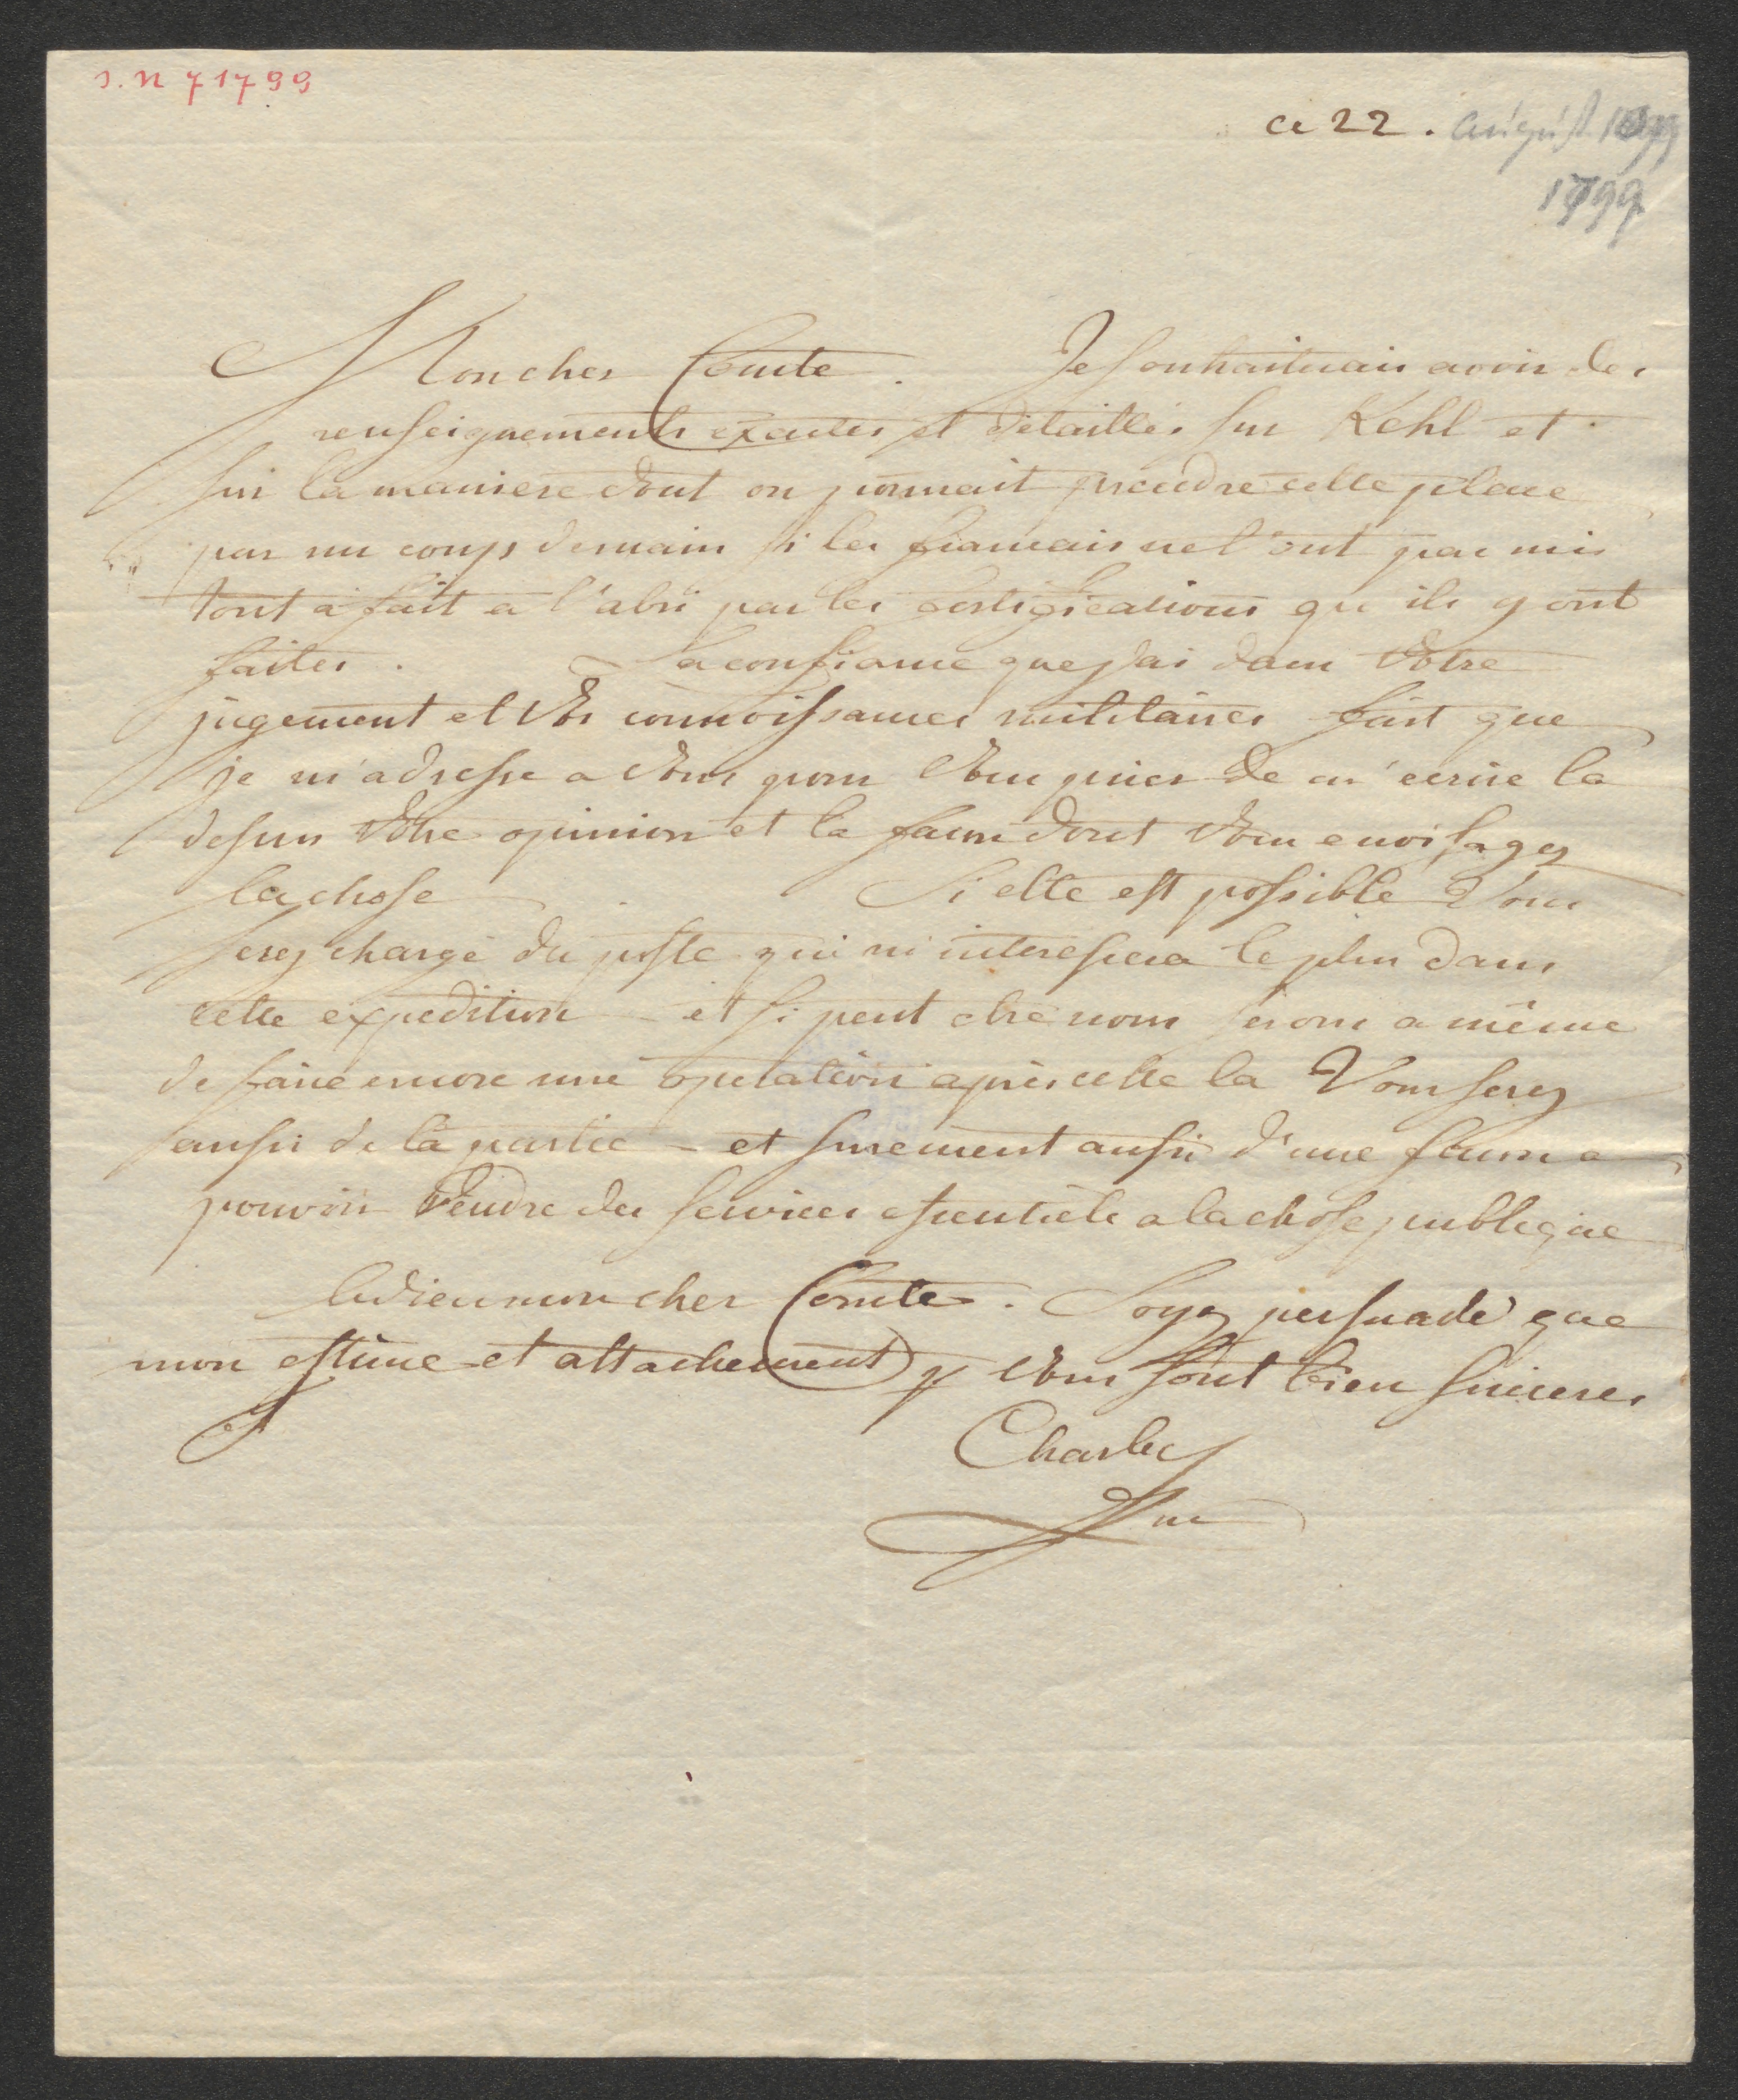 s. n 71799
ce 22. august 1799
1799
Mon cher Comte. Je souhaiterais avoir des
renseignements exactes et détaillés sur Kehl et
sur la maniere dont on pourrait prendre cette place
par un coup demain si les francais ne l'ont pas mis
tout à fait a l'abri par les fortifications qu'ils y ont
faites. La confiance que j'ai dans Votre
jugement et Vos connoissances militaires fait que
je m'adresse a Vous pour Vous prier de m'ecrire la
dessus Votre opinion et la facon dont Vous envisagez
la chose Si elle est possible Vous
serez chargé du poste qui m'interessera le plus dans
cette expedition – et si peut etre nous serons a même
de faire encore une operation après celle la Vous serez
aussi de la partie – et surement aussi d'une facon a
pouvoir Rendre des services essentiels a la chose publique
Adieu mon cher Comte. Soyez persuadé que
mon estime et attachement p Vous sont bien sinceres
Charles